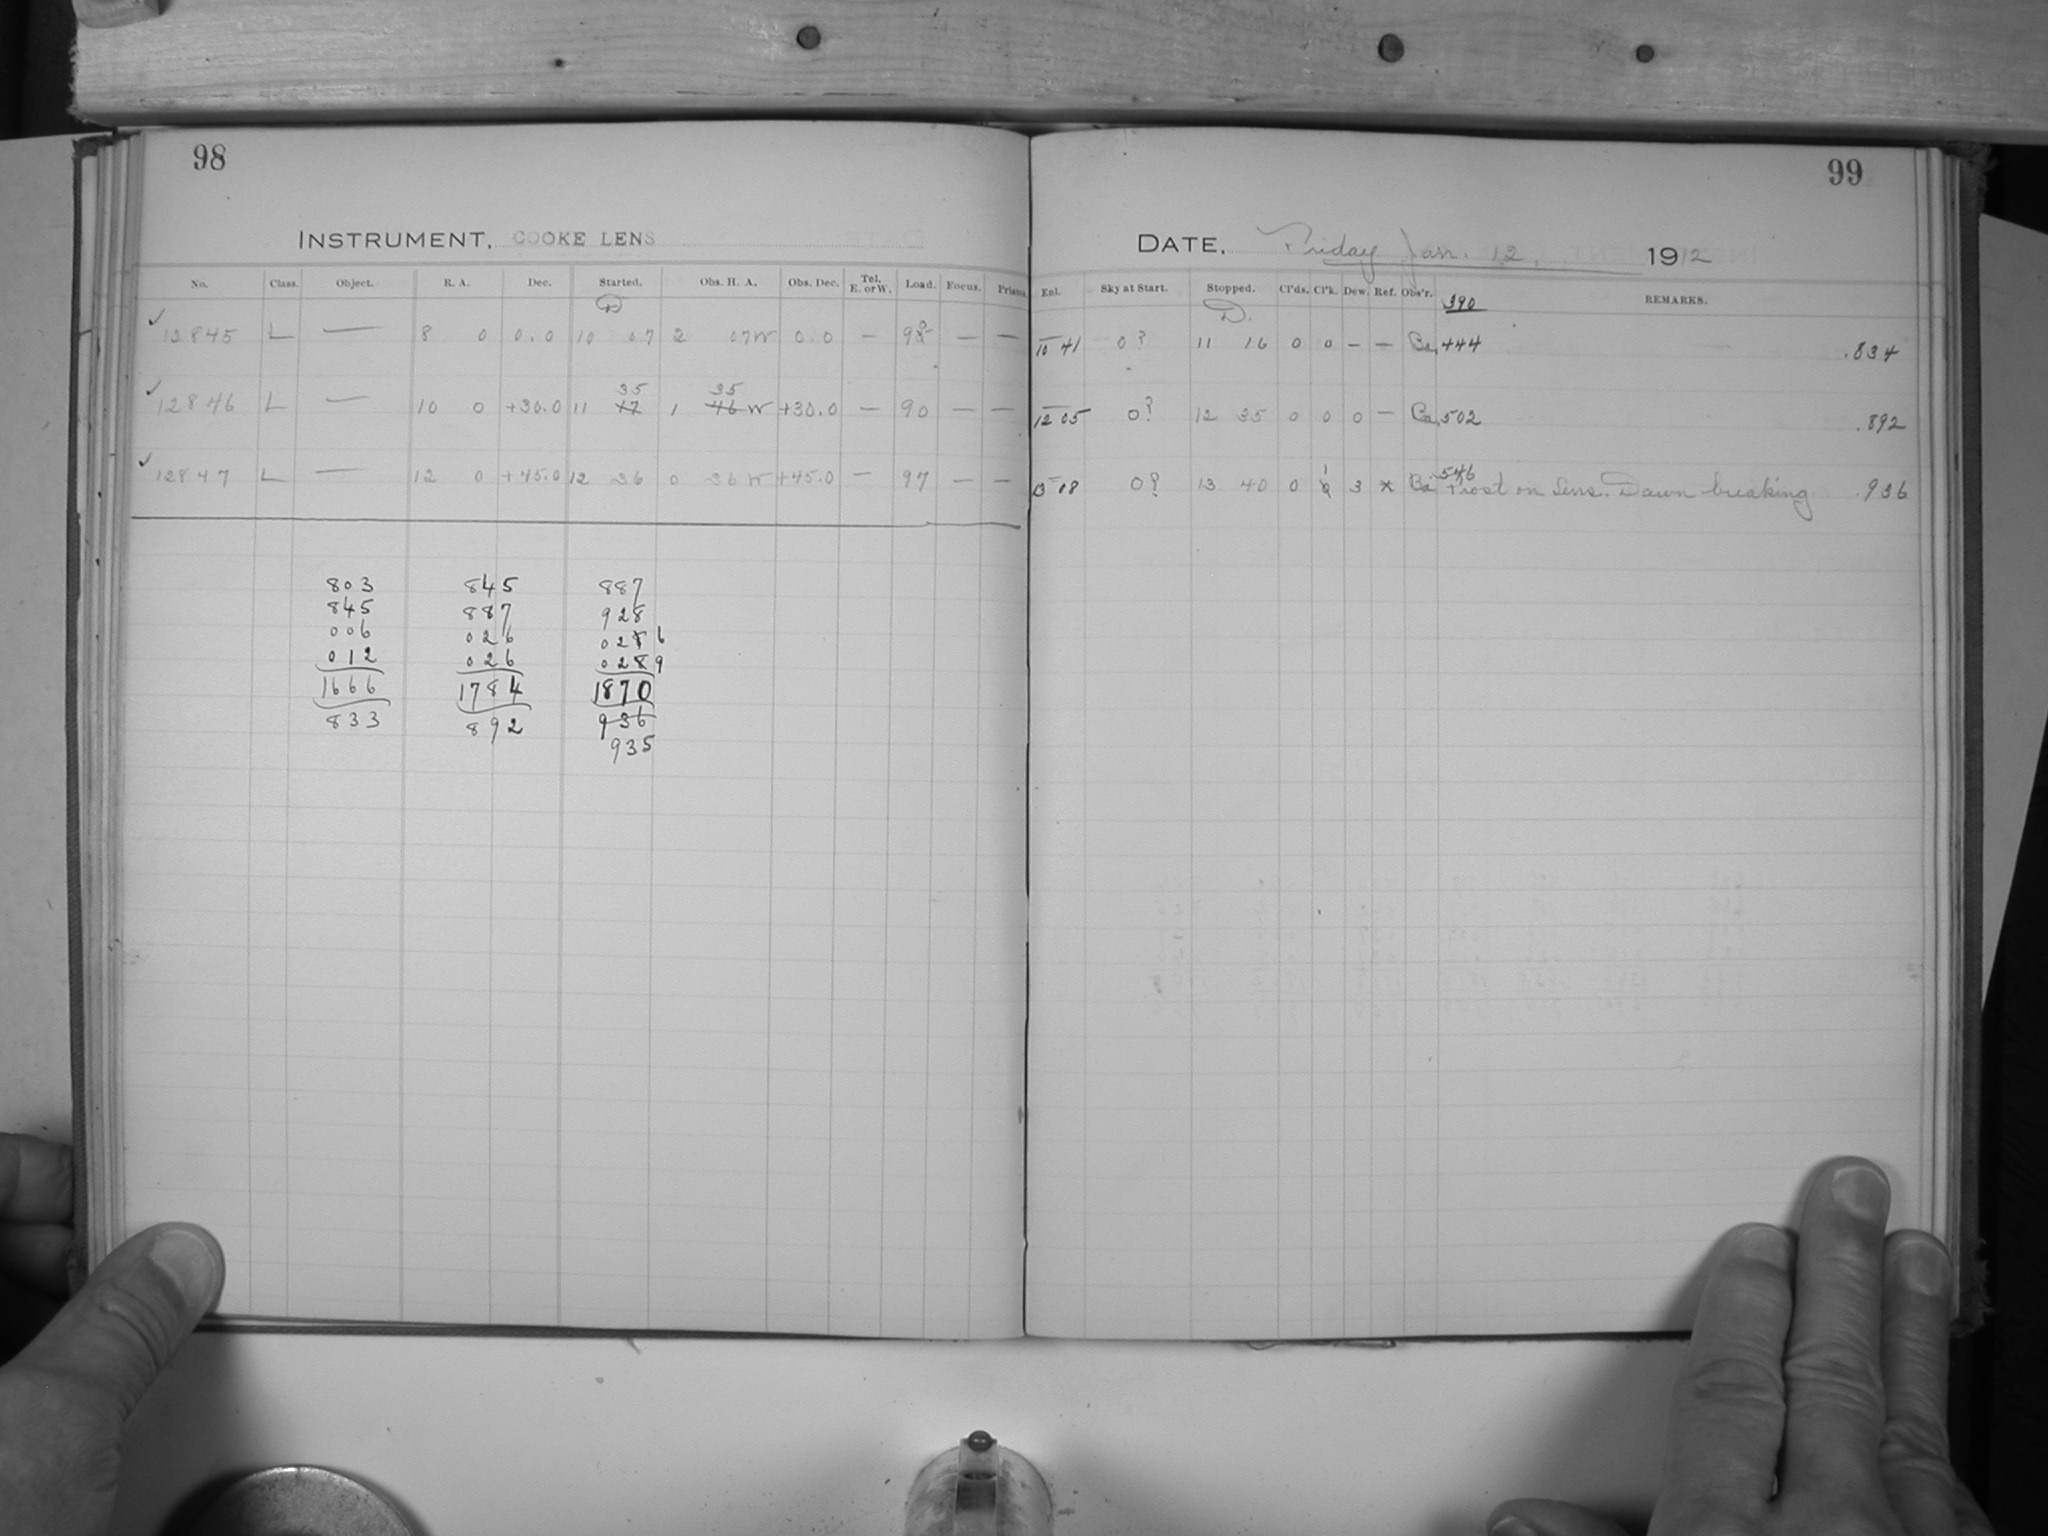 98
INSTRUMENT, COOKE LENS
No. Class. Object. R. A. Dec. Started. Obs. H. A. Obs. Dec. Tel. E. or W. Load. Focus. Prisms
D
✓ 12845 L — 8 0 0.0 10 07 2 07 W 0.0 — — —
35 35
✓ 12846 L — 10 0 +30.0 11 47 1 46 W +30.0 — 90 — —
✓ 12847 L — 12 0 +45.0 12 36 0 36 W +45.0 — 97 — —
803 845 887
845 887 928
006 026 028 6
012 026 028 9
1666 1784 1870
833 892 936
935
99
DATE, Friday Jan. 12, 1912
Enl. Sky at Start. Stopped. Cl'ds. Cl'k. Dew. Ref. Obs'r. 390 REMARKS.
D.
10 41 0? 11 16 0 0 — — Ba .444 .834
12 05 0? 12 35 0 0 0 — Ba .502 .892
1 .546
13 08 0? 13 40 0 0 3 x Ba Frost on lens. Dawn breaking. .936